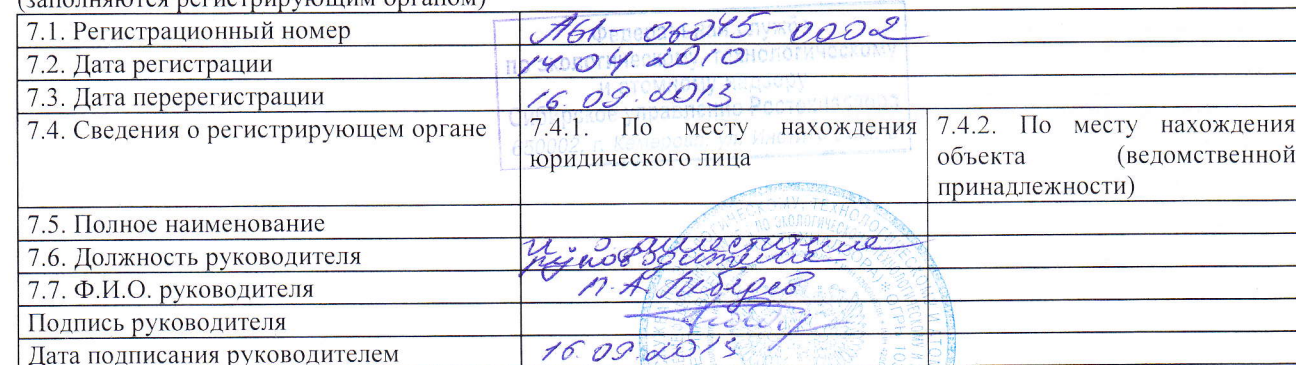 (заполняются регистрирующим органом)
7.1. Регистрационный номер А61-06045-0002
7.2. Дата регистрации 14.04.2010
7.3. Дата перерегистрации 16.09.2013
7.4. Сведения о регистрирующем органе 7.4.1. По месту нахождения 7.4.2. По месту нахождения
юридического лица объекта (ведомственной
принадлежности)
7.5. Полное наименование
и о заместителя
7.6. Должность руководителя руководителя
7.7. Ф.И.О. руководителя П.А. Лебедев
Подпись руководителя
Дата подписания руководителем 16.09.2013